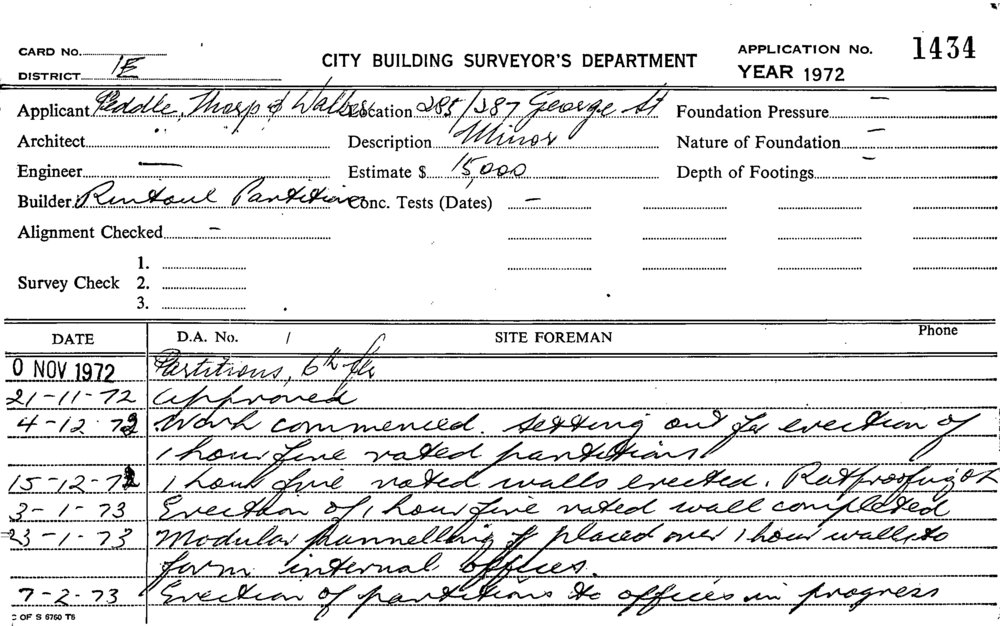 CARD No.
DISTRICT 1E
CITY BUILDING SURVEYOR'S DEPARTMENT
APPLICATION No. 1434
YEAR 1972
Applicant Peddle, Thorp & Walker Location 285/287 George St Foundation Pressure —
Architect " " Description Minor Nature of Foundation —
Engineer — Estimate $ 15,000 Depth of Footings —
Builder Rintoul Partitions Conc. Tests (Dates) —
Alignment Checked -
Survey Check 1.
2.
3.
DATE D.A. No. / SITE FOREMAN Phone
0 NOV 1972 Partitions, 6th flr
21-11-72 Approved
4-12-72 Work commenced. Setting out for erection of
1 hour fire rated partitions
15-12-72 1 hour fire rated walls erected. Ratproofing OK
3-1-73 Erection of 1 hour fire rated wall completed
23-1-73 Modular pannelling placed over 1 hour walls to
form internal offices.
7-2-73 Erection of partitions to offices in progress
C OF S 6750 T5